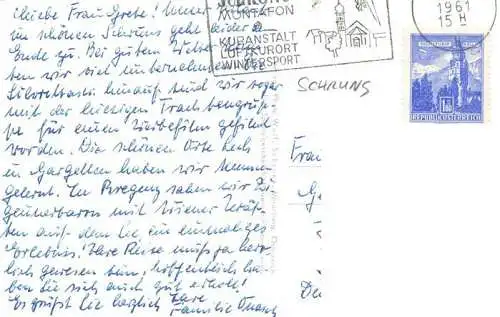 Liebe Frau Grete! Unser
im schönen Schruns geht leider z
Ende zu. Bei gutem Wetter
ben wir viel unternommen.
Silvrettasee hinauf und wir sogar
mit der hiesigen Trachtengrup-
pe für einen Werbefilm gefilmt
worden. Die schönen Orte Lech
u. Gargellen haben wir kennen
gelernt. In Bregenz sahen wir Zi-
geunerbaron mit Wiener Kräf-
ten auf dem See ein einmaliges
Erlebnis! Ihre Reise muß ja herr-
lich gewesen sein, hoffentlich ha-
ben Sie sich auch gut erholt!
Es grüßt Sie herzlich Ihre
Familie
MONTAFON
KURANSTALT
LUFTKURORT
WINTERSPORT
1961
15 H
SCHRUNS
REPUBLIK ÖSTERREICH
Frau